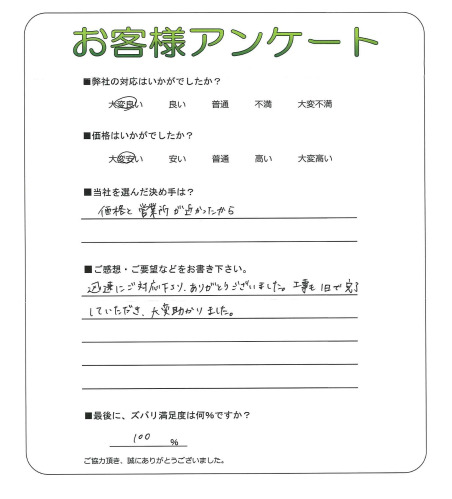 お客様アンケート
■弊社の対応はいかがでしたか？
大変良い 良い 普通 不満 大変不満
■価格はいかがでしたか？
大変安い 安い 普通 高い 大変高い
■当社を選んだ決め手は？
価格と営業所が近かったから
■ご感想・ご要望などをお書き下さい。
迅速にご対応下さり、ありがとうございました。工事も1日で完了
していただき、大変助かりました。
■最後に、ズバリ満足度は何%ですか？
100 %
ご協力頂き、誠にありがとうございました。